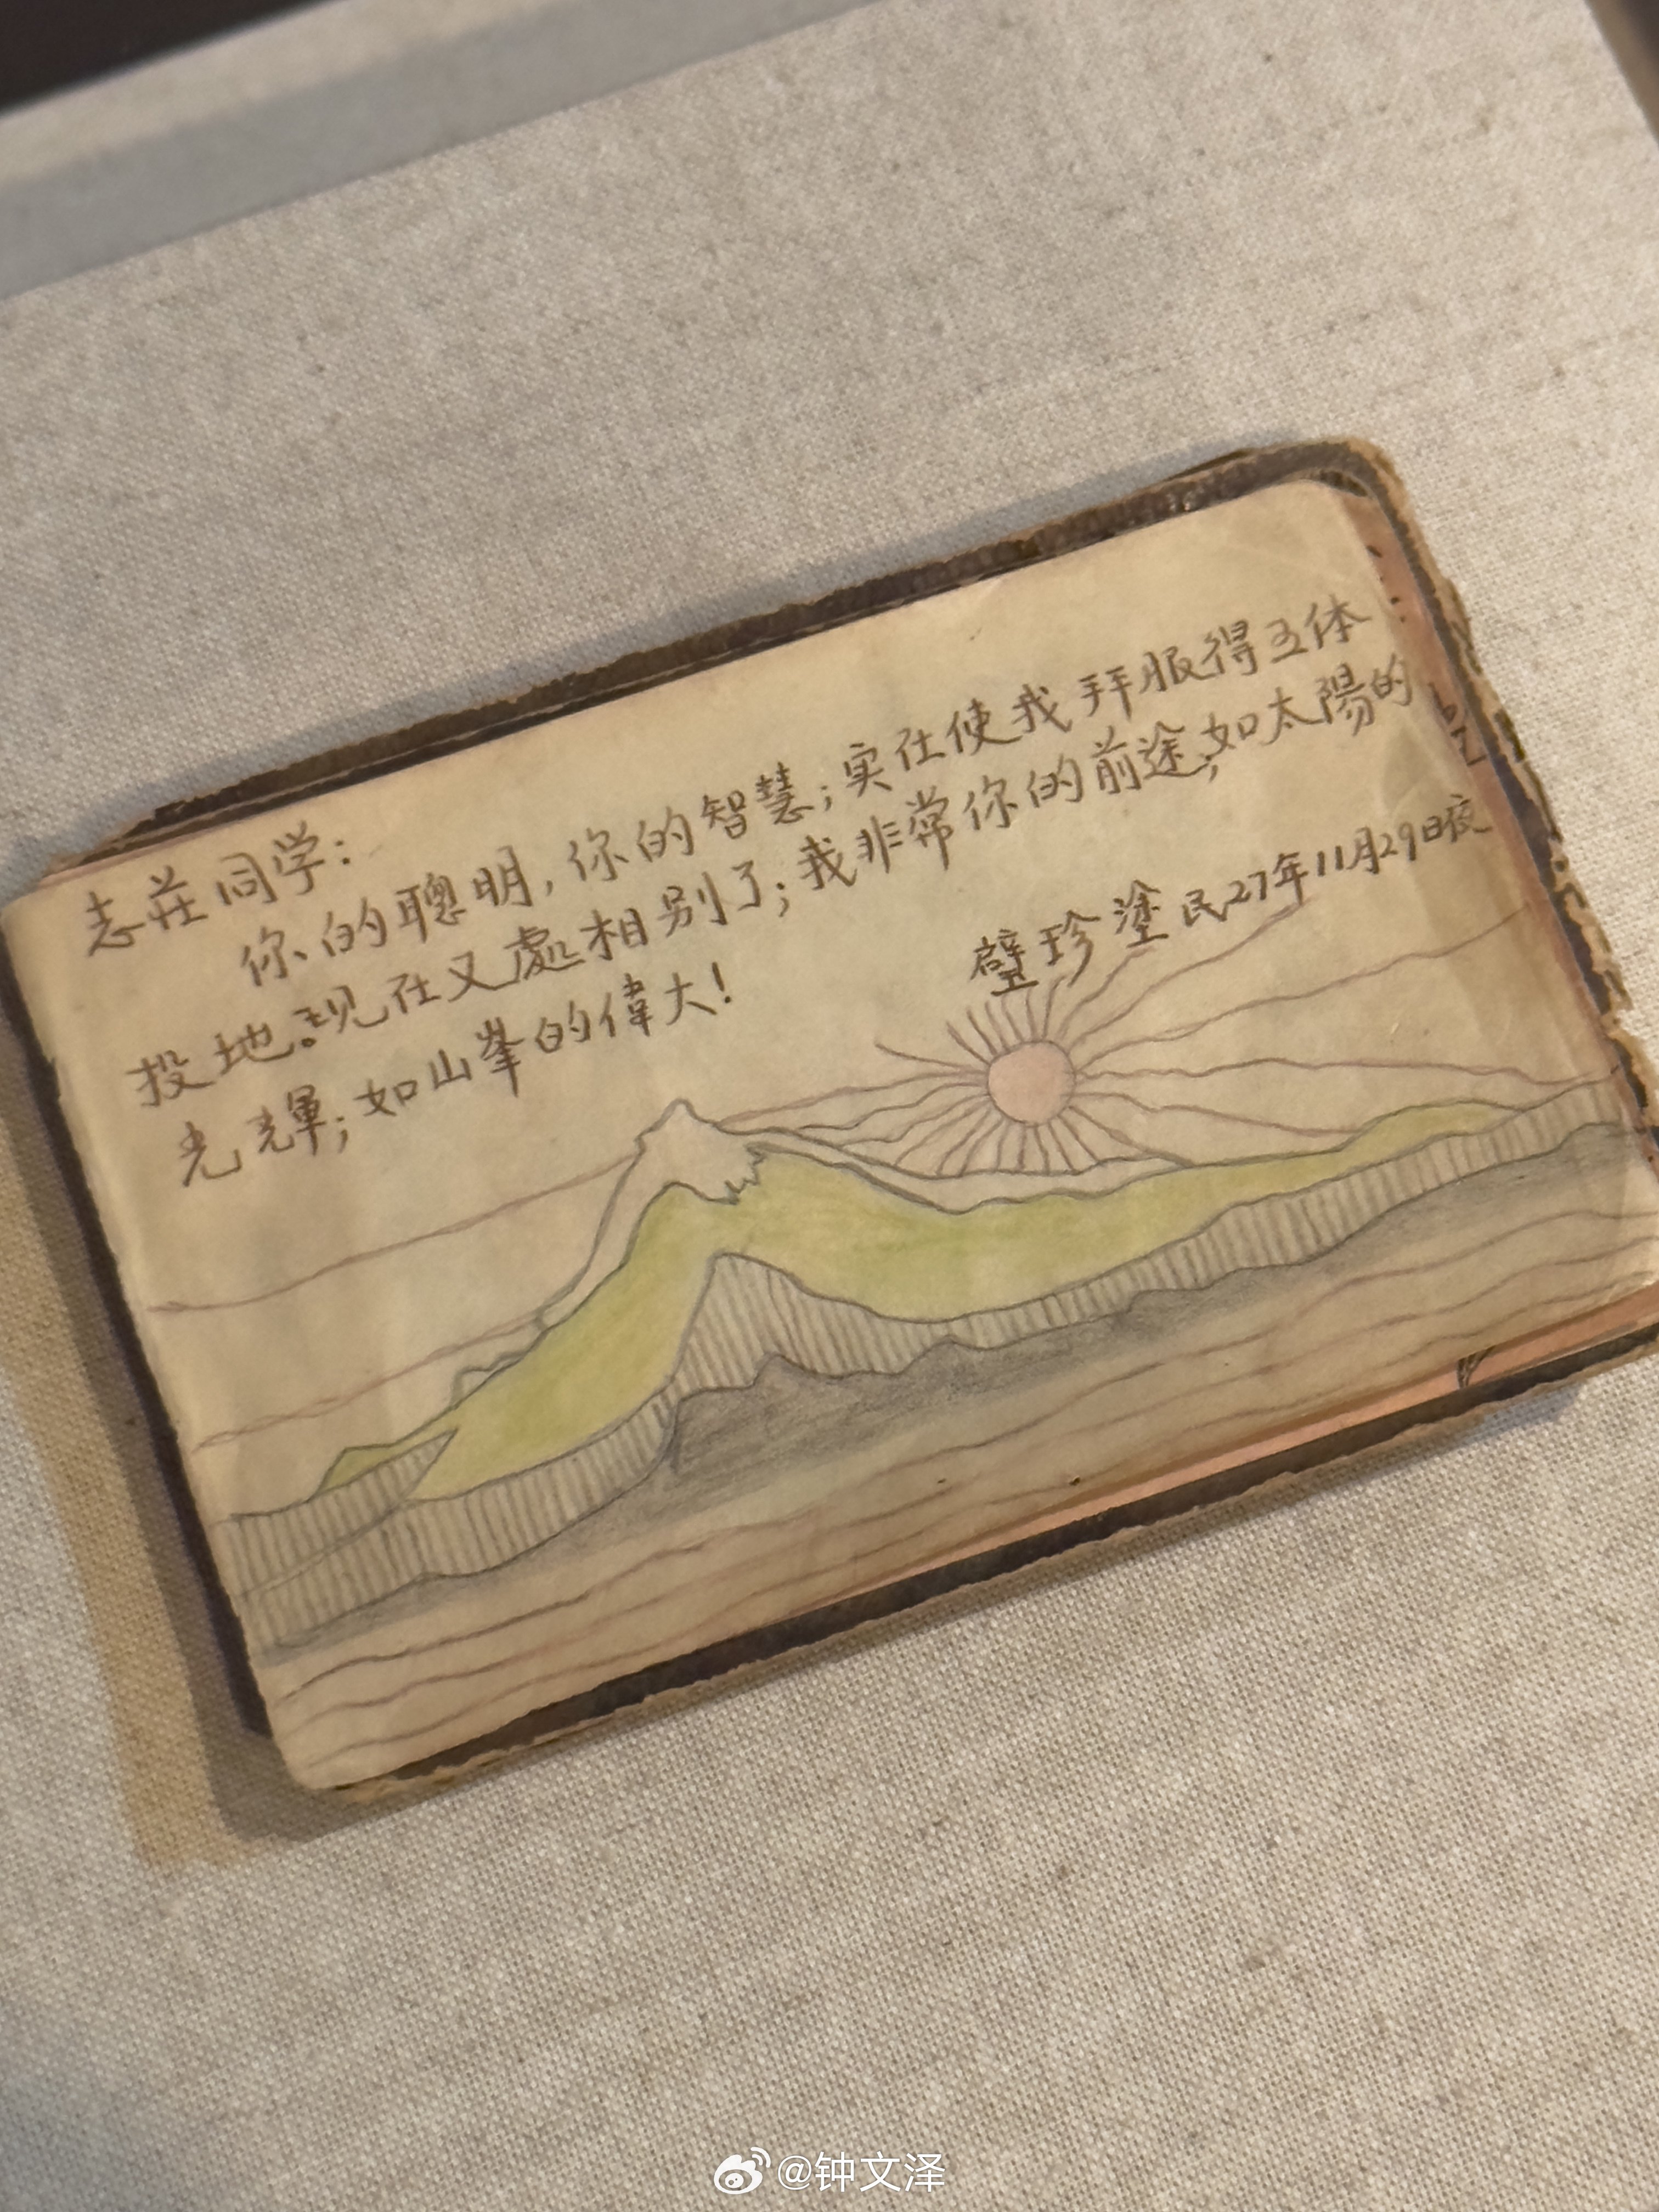 志莊同学：
你的聰明，你的智慧；实在使我拜服得五体
投地。现在又處相别了；我非常你的前途，如太陽的
光輝；如山峯的偉大！
璧珍塗 民27年11月29日夜
@钟文泽